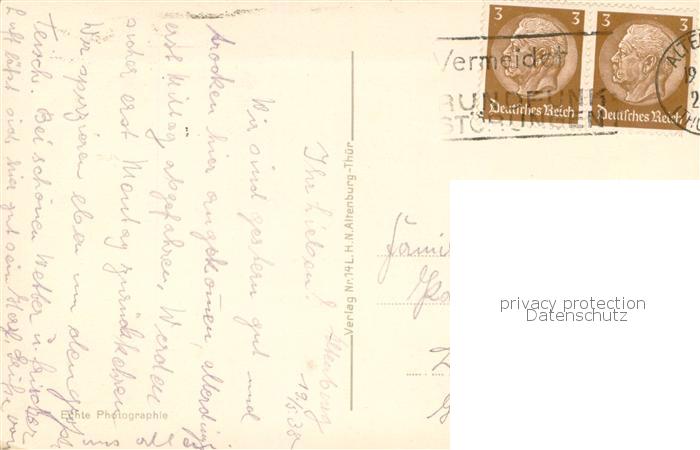 3 3 3 3
Deutsches Reich Deutsches Reich
Vermeidet
RUNDFUNK
STÖRUNGEN
ALTEN
19
2
Altenburg
19/5.38
Ihr Lieben!
Wir sind gestern gut und
trocken hier angekommen, allerdings
erst Mittag abgefahren. Werden
sicher erst Montag zurückkehren
Wir spazieren eben um den
Teich. Bei schönem Wetter u. frischer
Luft läßt sich hier gut sein. Herzl. Grüße von
Verlag Nr. 14 L.H.N. Altenburg-Thür.
Echte Photographie
privacy protection
Datenschutz